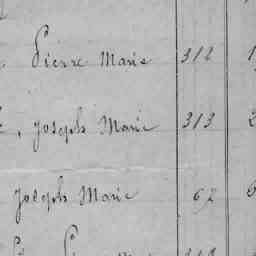 Pierre Marie 312
, Joseph Marie 313
Joseph Marie 67